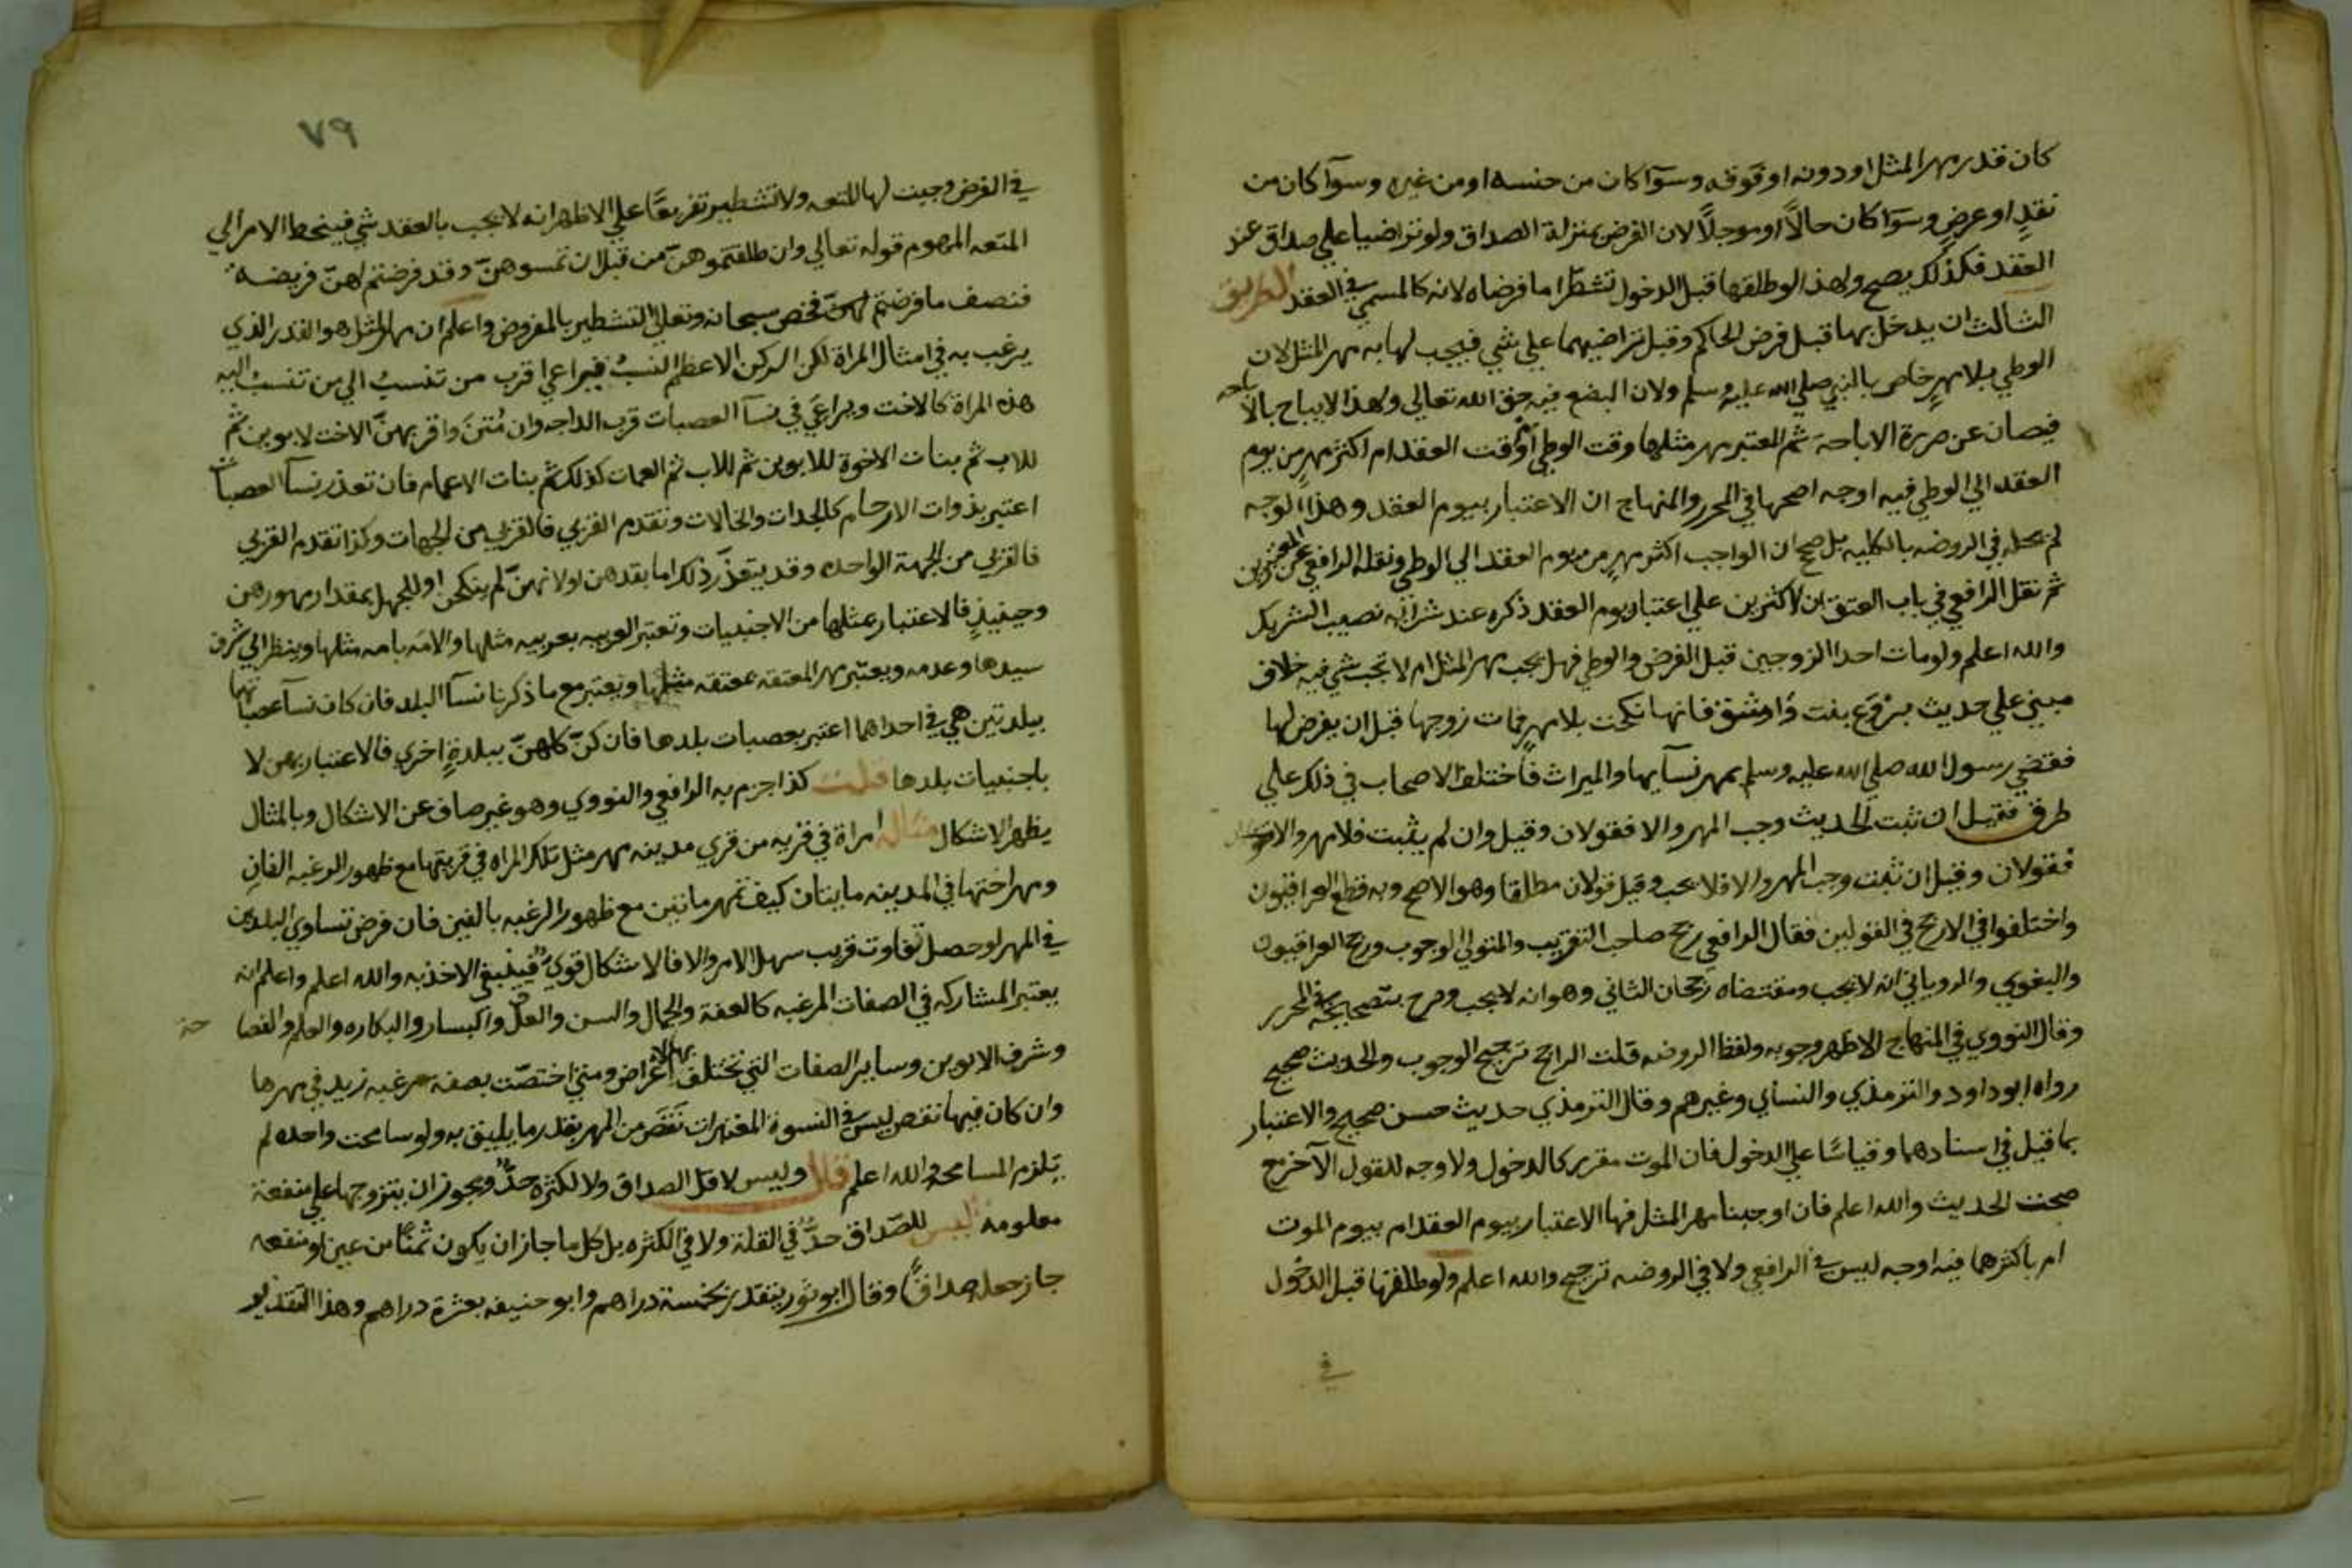 كان قدر مهر المثل او دونه او فوقه وسوآ كان من جنسه او من غيره وسوآ كان من
نقدٍ او عرضٍ وسوآ كان حالاً او موجلاً لان الفرض بمنزلة الصداق ولو تراضيا علي صداق عند
العقد فكذلك يصح ولهذا لو طلقها قبل الدخول تشطرا ما فرضاه لانه كالمسمي في العقد الطريق
الثالث ان يدخل بها قبل فرض الحاكم وقبل تراضيهما علي شي فيجب لها به مهر المثل لان
الوطي بلا مهرٍ خاص بالنبي صلي الله عليه وسلم ولان البضع فيه حق الله تعالي ولهذا لا يباح بالاباحه
فيصان عن صورة الاباحة ثم المعتبر مهر مثلها وقت الوطي او وقت العقد ام اكثر مهرٍ من يوم
العقد الي الوطي فيه اوجه اصحها في المحرر والمنهاج ان الاعتبار بيوم العقد وهذا الوجه
لم يحكه في الروضه بالكليه بل صحح ان الواجب اكثر مهرٍ من يوم العقد الي الوطي ونقله الرافعي عن المعتبرين
ثم نقل الرافعي في باب العتق ان الاكثرين علي اعتبار يوم العقد ذكره عند شرآئه نصيب الشريك
والله اعلم ولو مات احد الزوجين قبل الفرض والوطي فهل يجب مهر المثل ام لا يجب شي فيه خلاف
مبني علي حديث بروع بنت واشق فانها نكحت بلا مهرٍ فمات زوجها قبل ان يفرض لها
فقضي رسول الله صلي الله عليه وسلم بمهر نسآيها والميراث فاختلف الاصحاب في ذلك علي
طرق فقيل ان ثبت الحديث وجب المهر والا فقولان وقيل وان لم يثبت فلا مهر والا
فقولان وقيل ان ثبت وجب المهر والا فلا يجب وقيل قولان مطلقا وهو الاصح وبه قطع العراقيون
واختلفوا في الارجح في القولين فقال الرافعي رجح صاحب التقريب والمتولي الوجوب ورجح العراقيون
والبغوي والروياني انه لا يجب ومقتضاه رجحان الثاني وهو انه لا يجب وصرح بتصحيحه في المحرر
وقال النووي في المنهاج الاظهر وجوبه ولفظ الروضه قلت الراجح ترجيح الوجوب والحديث صحيح
رواه ابو داود والترمذي والنسأي وغيرهم وقال الترمذي حديث حسن صحيح ولا اعتبار
بما قيل في اسنادهما وقياسًا علي الدخول فان الموت مقرر كالدخول ولا وجه للقول الآخر مع
صحت الحديث والله اعلم فان اوجبنا مهر المثل فها الاعتبار بيوم العقد ام بيوم الموت
ام باكثرهما فيه اوجه ليس في الرافعي ولا في الروضه ترجيح والله اعلم ولو طلقها قبل الدخول
في
٧٩
في الفرض وجبت لها المتعه ولا تشطير تفريعًا علي الاظهر انه لا يجب بالعقد شي فينحط الامر الي
المتعه المفهوم قوله تعالي وان طلقتموهنّ من قبل ان تمسوهنّ وقد فرضتم لهنّ فريضه
فنصف ما فرضتم لهنّ فخص سبحانه وتعالي التشطير بالمفروض واعلم ان مهر المثل هو القدر الذي
يرغب به في امثال المراة لكن الركن الاعظم النسبُ فيراعي اقرب من تنسبُ الي من تنسب اليه
هذه المراة كالاخت ويراعي في نسآ العصبات قرب الدرجه وان مُتنَ واقربهنّ الاخت لابوين ثم
للاب ثم بنات الاخوة للابوين ثم للاب ثم العمات كذلك ثم بنات الاعمام فان تعذر نسآ العصبات
اعتبر بذوات الارحام كالجدات والخالات وتقدم القربي فالقربي من الجهات وكذا تقدم القربي
فالقربي من الجهة الواحده وقد يتعذر ذلك اما بفقدهن او لانهنّ لم ينكحن او للجهل بمقدار مهورهن
وحينيذٍ فالاعتبار بمثلها من الاجنبيات وتعتبر العربيه بعربيه مثلها والامَه بامه مثلها وينظر الي شرف
سيدها وعدمه ويعتبر مهر المعتقه بمعتقه مثلها ويعتبر مع ما ذكرنا نسآ البلد فان كان نسآ عصباتها
ببلدتين هي في احداهما اعتبر بعصبات بلدها فان كنّ كلهنّ ببلدةٍ اخري فالاعتبار بهن لا
باجنبيات بلدها قلت كذا جزم به الرافعي والنووي وهو غير صاف عن الاشكال وبالمثال
يظهر الاشكال مثاله امراة في قريه من قري مدينه مهر مثل تلك المراه في قريتها مع ظهور الرغبه الفانِ
ومهر اختها في المدينه مايتان كيف تمهر مايتين مع ظهور الرغبه بالفين فان فرض تساوي البلدين
في المهر او حصل تفاوت قريب سهل الامر والا فالاشكال قويٌّ فينبغي الاخذ به والله اعلم واعلم انه
يعتبر المشاركه في الصفات المرغبه كالعفة والجمال والسن والعقل واليسار والبكاره والعلم والفصاحة
وشرف الابوين وساير الصفات التي تختلف بها الاغراض ومتي اختصّت بصفة مرغبه زيد في مهرها
وان كان فيها نقص ليس في النسوة المعتبرات نَقَصَ من المهر بقدر ما يليق به ولو سامحت واحده لم
يلزم المسامحه والله اعلم قال وليس لاقل الصداق ولا لكثره حدٌّ ويجوز ان يتزوجها علي منفعة
معلومه ليس للصداق حدٌّ في القلة ولا في الكثره بل كل ما جاز ان يكون ثمنًا من عين او منفعه
جاز جعله صداقًا وقال ابو ثور يتقدر بخمسة دراهم وابو حنيفه بعشرة دراهم وهذا التقدير